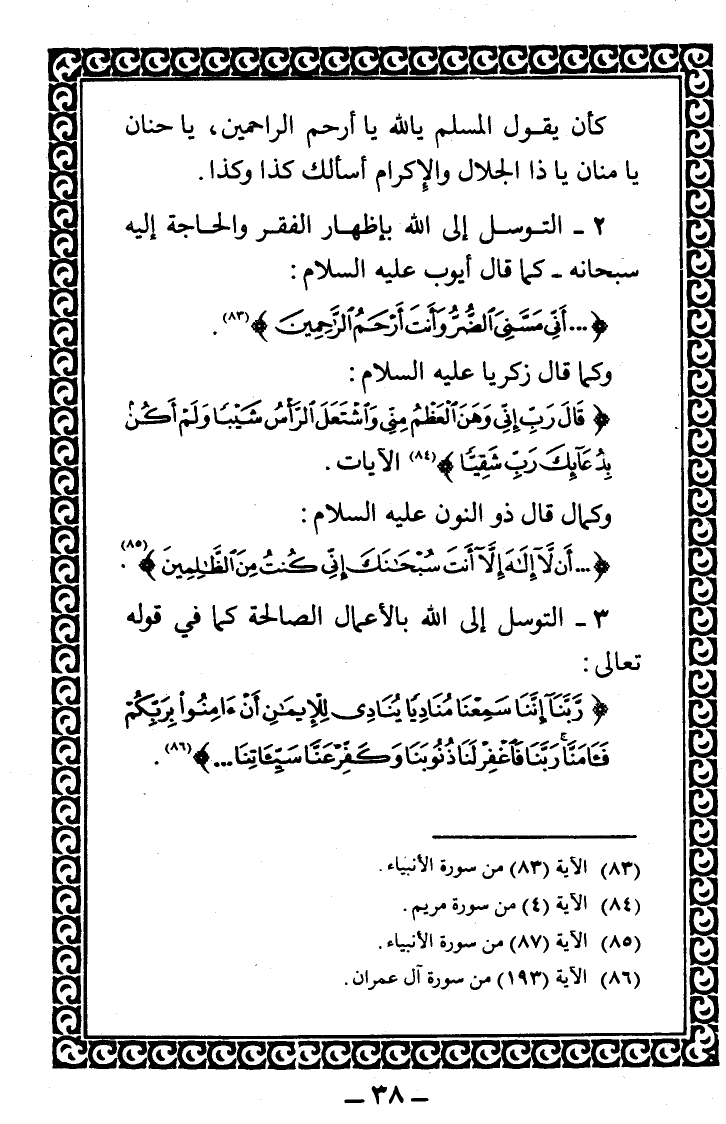 كأن يقول المسلم يالله يا أرحم الراحمين، يا حنان
يا منان يا ذا الجلال والإكرام أسألك كذا وكذا.
٢ ـ التوسل إلى الله بإظهار الفقر والحاجة إليه
سبحانه ـ كما قال أيوب عليه السلام:
﴿... أَنِّي مَسَّنِيَ ٱلضُّرُّ وَأَنتَ أَرْحَمُ ٱلرَّٰحِمِينَ﴾(٨٣).
وكما قال زكريا عليه السلام:
﴿قَالَ رَبِّ إِنِّي وَهَنَ ٱلْعَظْمُ مِنِّي وَٱشْتَعَلَ ٱلرَّأْسُ شَيْبًا وَلَمْ أَكُنۢ
بِدُعَآئِكَ رَبِّ شَقِيًّا﴾(٨٤) الآيات.
وكمال قال ذو النون عليه السلام:
﴿... أَن لَّآ إِلَٰهَ إِلَّآ أَنتَ سُبْحَٰنَكَ إِنِّي كُنتُ مِنَ ٱلظَّٰلِمِينَ﴾(٨٥).
٣ ـ التوسل إلى الله بالأعمال الصالحة كما في قوله
تعالى:
﴿رَّبَّنَآ إِنَّنَا سَمِعْنَا مُنَادِيًا يُنَادِي لِلْإِيمَٰنِ أَنْ ءَامِنُوا۟ بِرَبِّكُمْ
فَـَٔامَنَّا ۚ رَبَّنَا فَٱغْفِرْ لَنَا ذُنُوبَنَا وَكَفِّرْ عَنَّا سَيِّـَٔاتِنَا...﴾(٨٦).
(٨٣) الآية (٨٣) من سورة الأنبياء.
(٨٤) الآية (٤) من سورة مريم.
(٨٥) الآية (٨٧) من سورة الأنبياء.
(٨٦) الآية (١٩٣) من سورة آل عمران.
ـ ٣٨ ـ